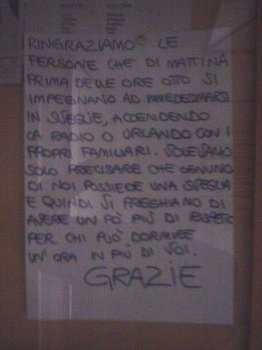 RINGRAZIAMO LE
PERSONE CHE DI MATTINA
PRIMA DELLE ORE OTTO SI
IMPEGNANO AD IMMEDESIMARSI
IN SVEGLIE, ACCENDENDO
LA RADIO O URLANDO CON I
PROPRI FAMILIARI. VOLEVAMO
SOLO PRECISARE CHE OGNUNO
DI NOI POSSIEDE UNA SVEGLIA
E QUINDI VI PREGHIAMO DI
AVERE UN PO' PIÙ DI RISPETTO
PER CHI PUO' DORMIRE
UN'ORA IN PIÙ DI VOI.
GRAZIE